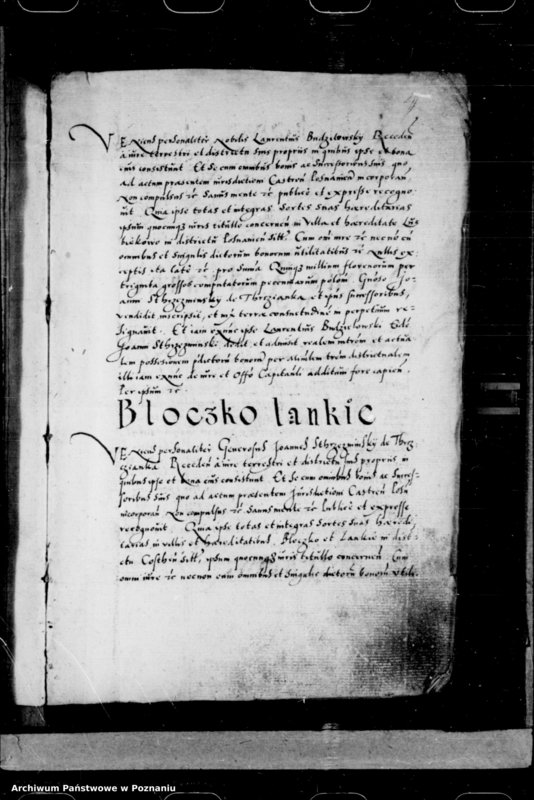 Veniens personaliter Nobilis Laurentius Budzilowsky Recedens
a iure terrestri et districtu suis propriis in quibus ipse et bona
eius consistunt. Et se cum omnibus bonis ac successoribus suis quo
ad actum praesentem iurisdictioni Castren̄ Posnanien̄ incorporan̄
Non compulsus etc̄ Sanus mente etc̄ publicē et expresse recogno
uit Quia ipse totas et integras Sortes suas haereditarias
ipsum quocunq iuris titulo concernen̄ in Villa et haereditate
in districtu Posnanien̄ sitt̄. Cum omni iure etc̄ necnon
omnibus et singulis dictorum bonorum vtilitatibus etc̄ Nullis ex
ceptis ita latē etc̄ pro suma Quinq millium florenorum per
triginta grossos computatorum pecuniarum polon̄. Gnoso Jo
anni Sthrzeminsky de Thrzcianka et eius successoribus,
vendidit inscripsit, et iuxta terrae consuetudinē in perpetuum re
signauit. Et iam exnunc ipse Laurentius Budzilowski
Joanni Sthrzeminski dedit et admisit realem intrōm et actua
lem possessionem bonorū per Ministrum districtualem
illi iam exnunc de iure et offō Capitali additum fore capien̄.
Per ipsum etc̄
Bloczko Lankie
Veniens personaliter Generosus Joannes Sthrzeminsky de Thrz
czianka Recedens a iure terrestri et districtu suis propriis in
quibus ipse et bona eius consistunt. Et se cum omnibus bonis ac succes
soribus suis quo ad actum praesentem Jurisdictioni Castren̄ Posn̄
incorporan̄ Non compulsus etc̄ Sanus mente etc̄ publicē et expresse
recognouit. Quia ipse totas et integras Sortes suas haeredi
tarias in villis et haereditatibus. Bloczko et Lankie in distri
ctu Costhen̄ sitt̄, ipsum quocunq iuris titullo concernen̄. Cum
omni iure etc̄ necnon cum omnibus et singulis dictorū bonorū vtili
Archiwum Państwowe w Poznaniu